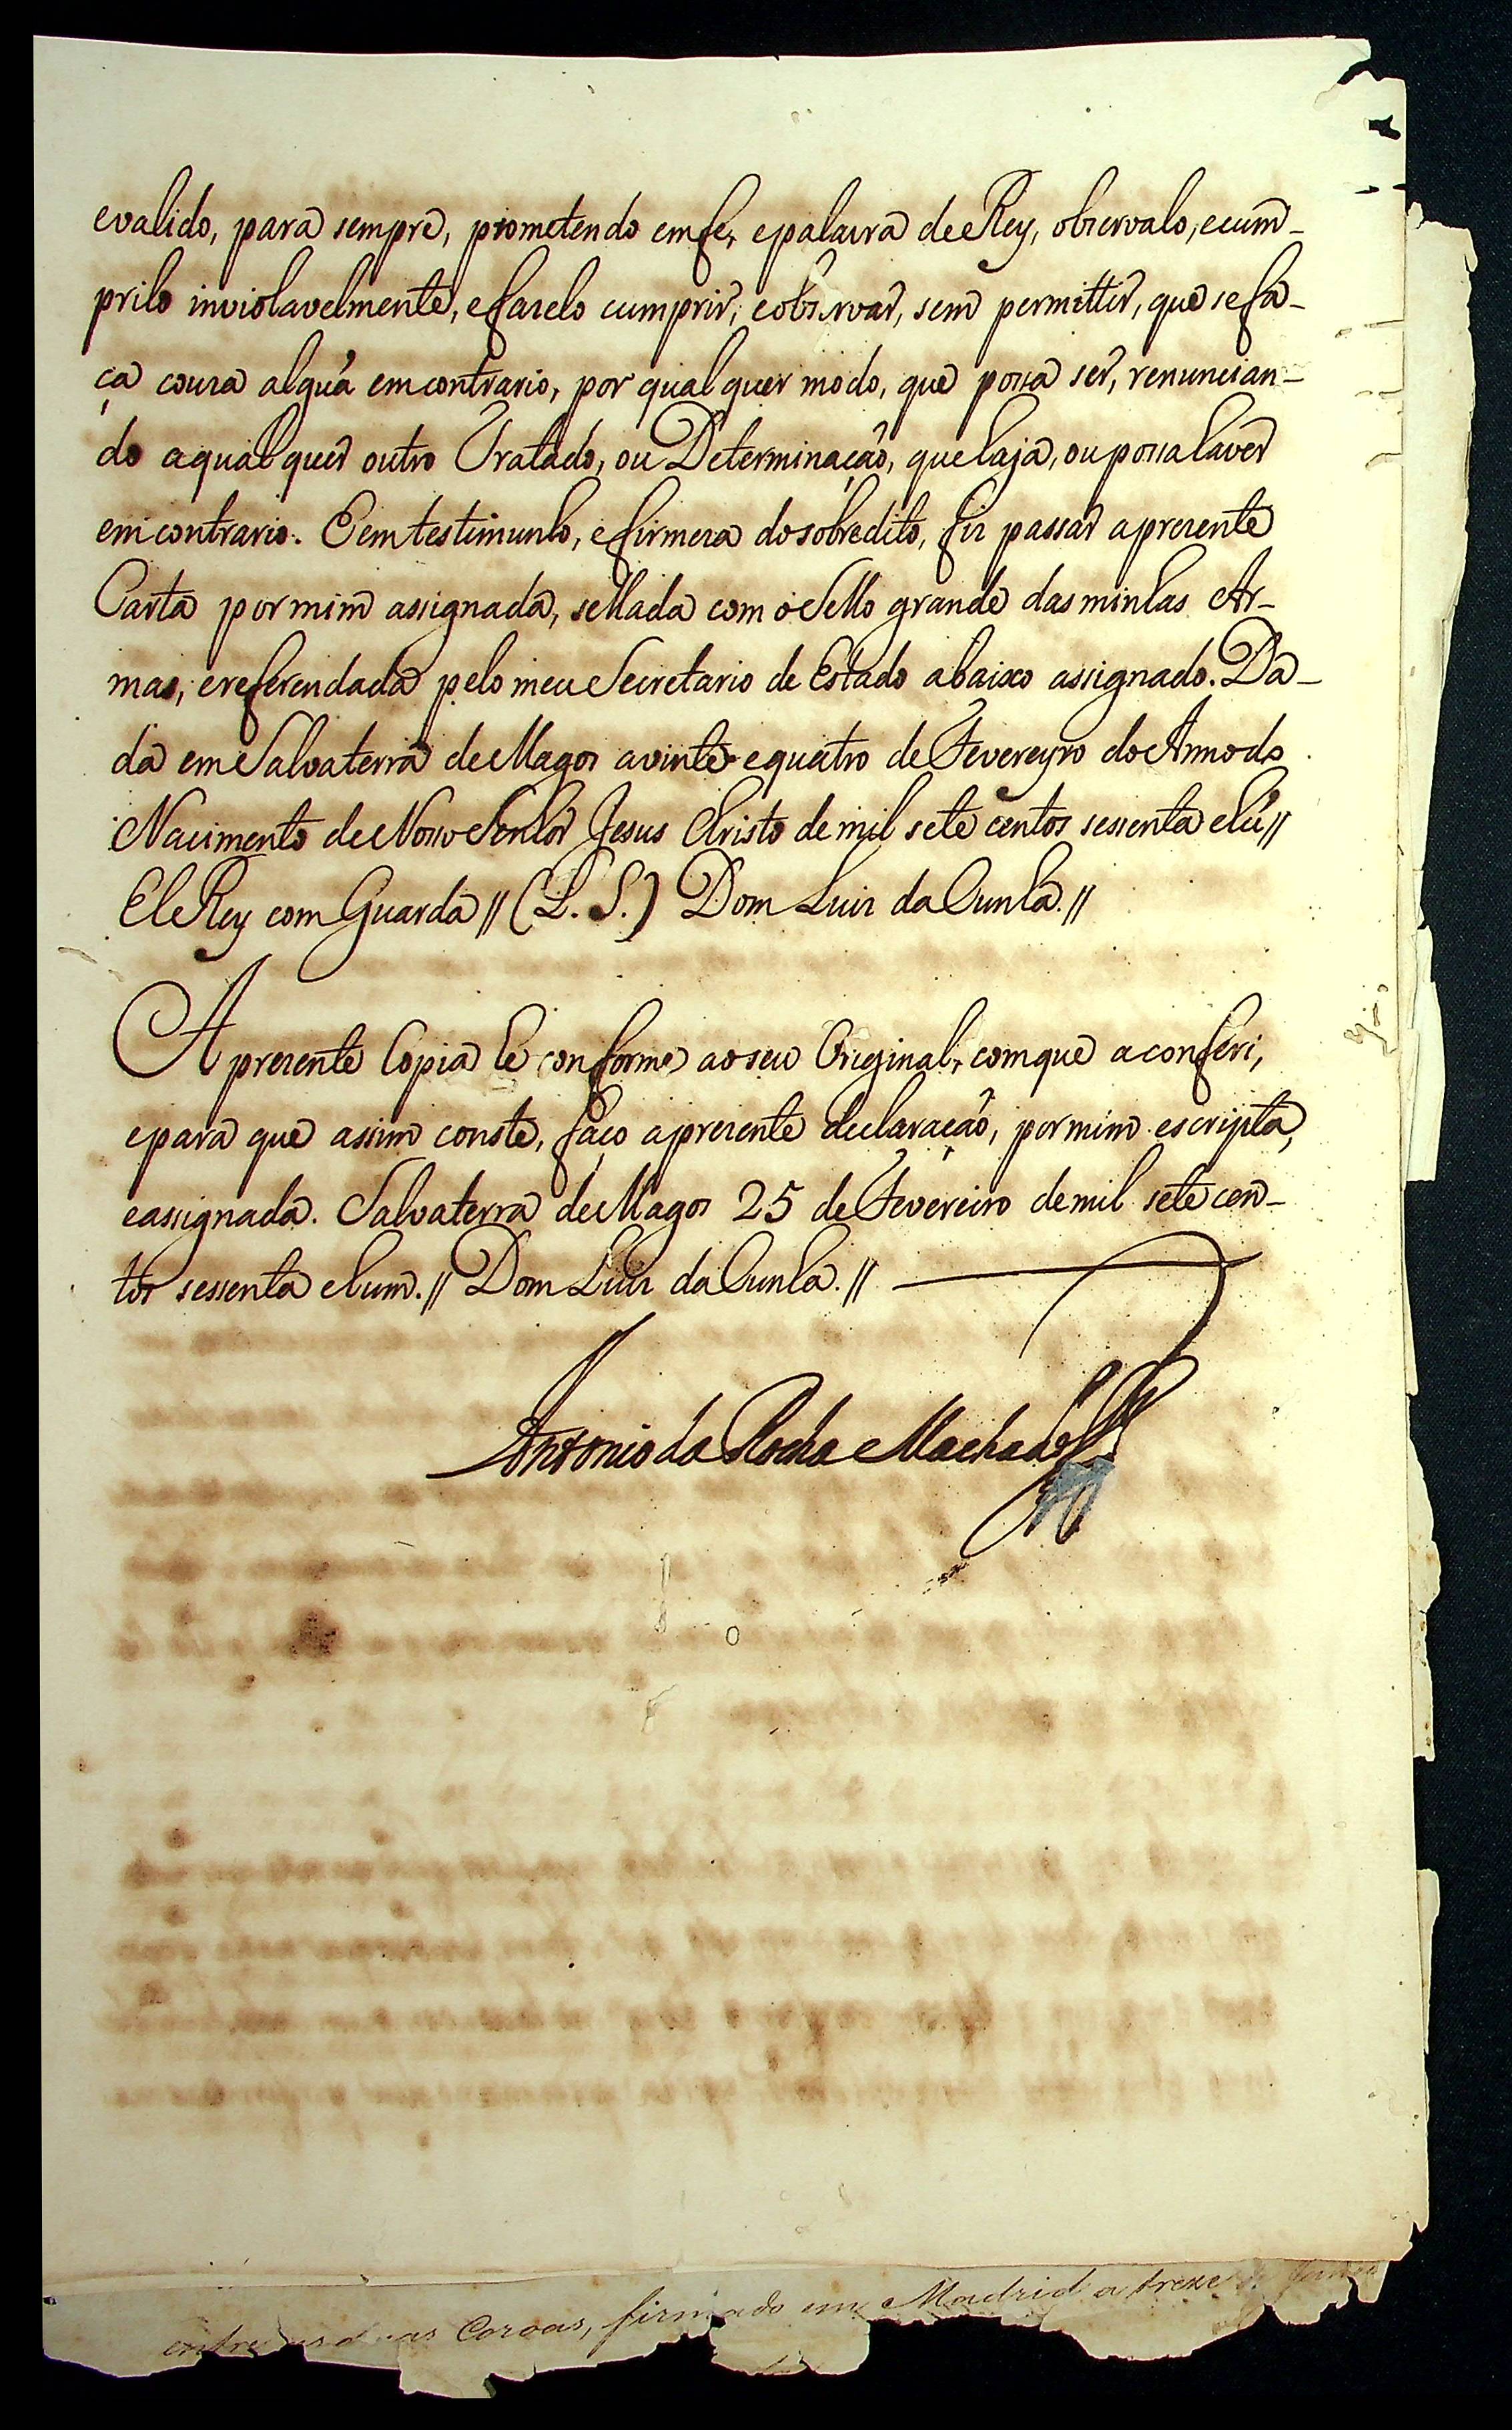 e valido, para sempre, prometendo em fe, e palavra de Rey, observalo, e cum-
prilo inviolavelmente, e fazelo cumprir, e observar, sem permittir, que se fa-
ça couza algũa em contrario, por qualquer modo, que possa ser, renuncian-
do a qualquer outro Tratado, ou Determinação, que haja, ou possa haver
em contrario. E em testimunho, e firmeza do sobredito, fiz passar a prezente
Carta por mim assignada, sellada com o Sello grande das minhas Ar-
mas, e referendada pelo meu Secretario de Estado abaixo assignado. Da-
da em Salvaterra de Magos a vinte e quatro de Fevereyro do Anno do
Nacimento de Nosso Senhor Jesus Christo de mil sete centos sessenta e hũ //
El Rey com Guarda // (L. S.) Dom Luiz da Cunha. //
A prezente Copia he conforme ao seu Original, com que a conferi,
e para que assim conste, faço a prezente declaração, por mim escripta,
e assignada. Salvaterra de Magos 25 de Fevereiro de mil sete cen-
tos sessenta e hum. // Dom Luiz da Cunha. //
Antonio da Rocha Machado
entre as duas Coroas, firmado em Madrid a treze de